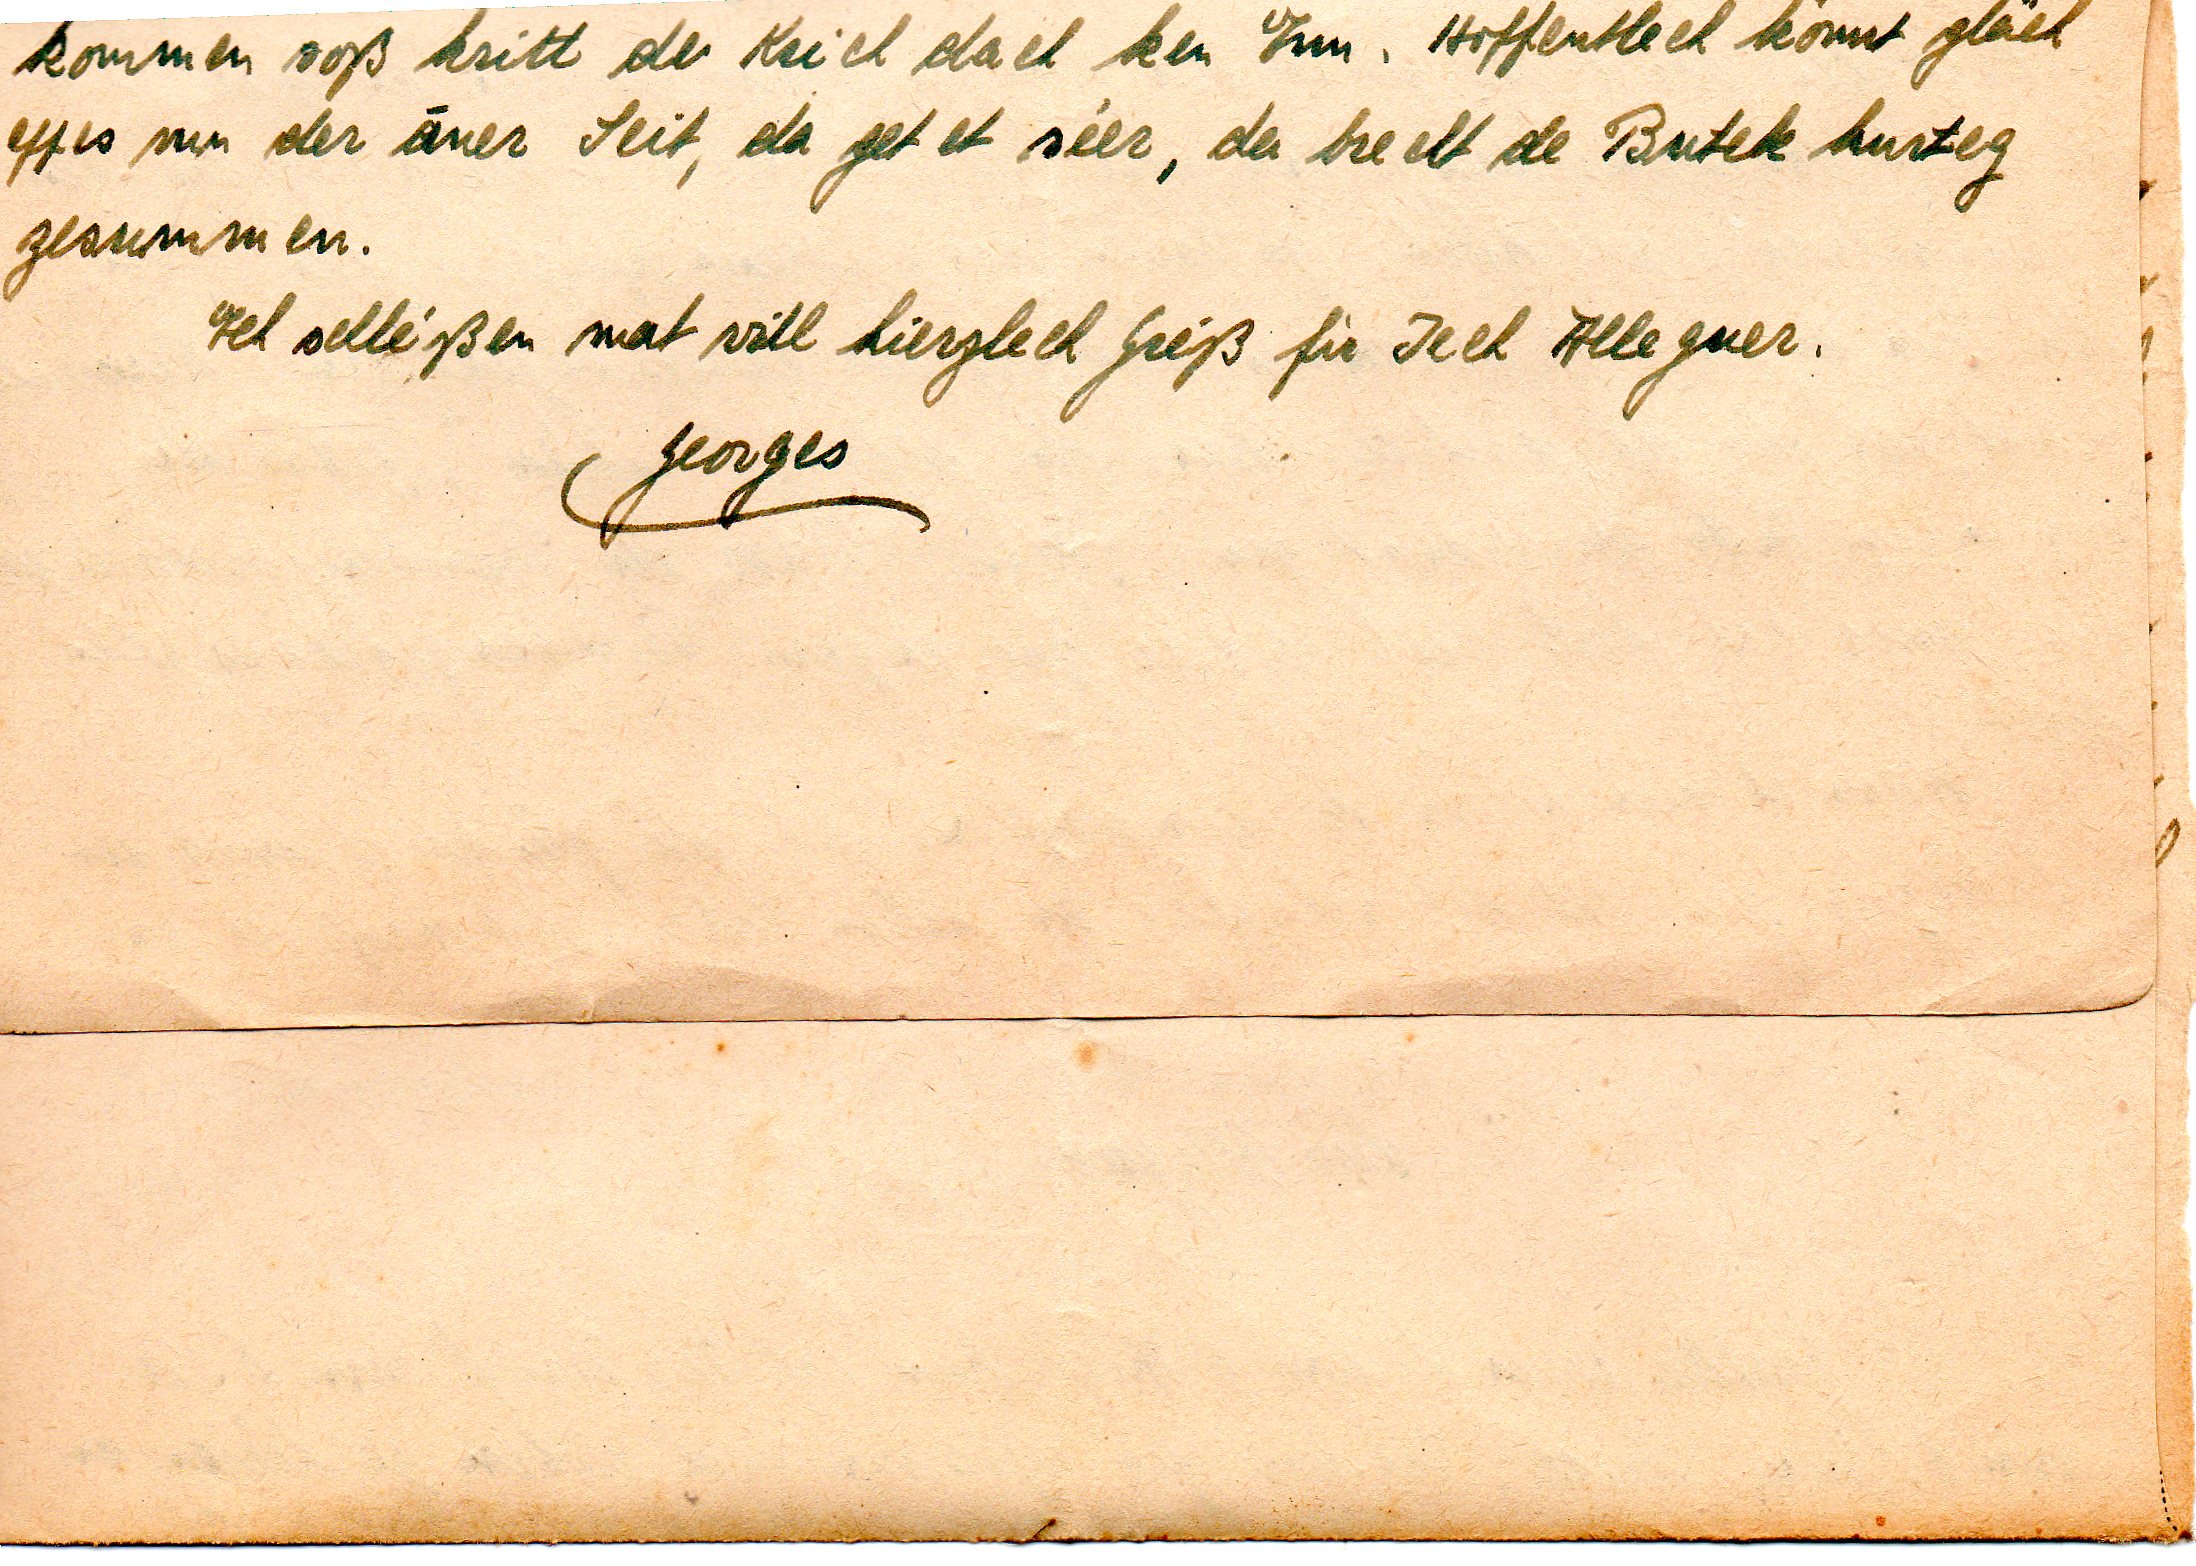 kommen soß kritt de Krich dach ken Inn. Hoffentlech kömt gläch
effes vun der äner Seit, da get et séer, da brecht de Butek hurteg
zesummen.
Ich schléißen mat vill hierzlech Gréiß fir Iech Alleguer.
Georges